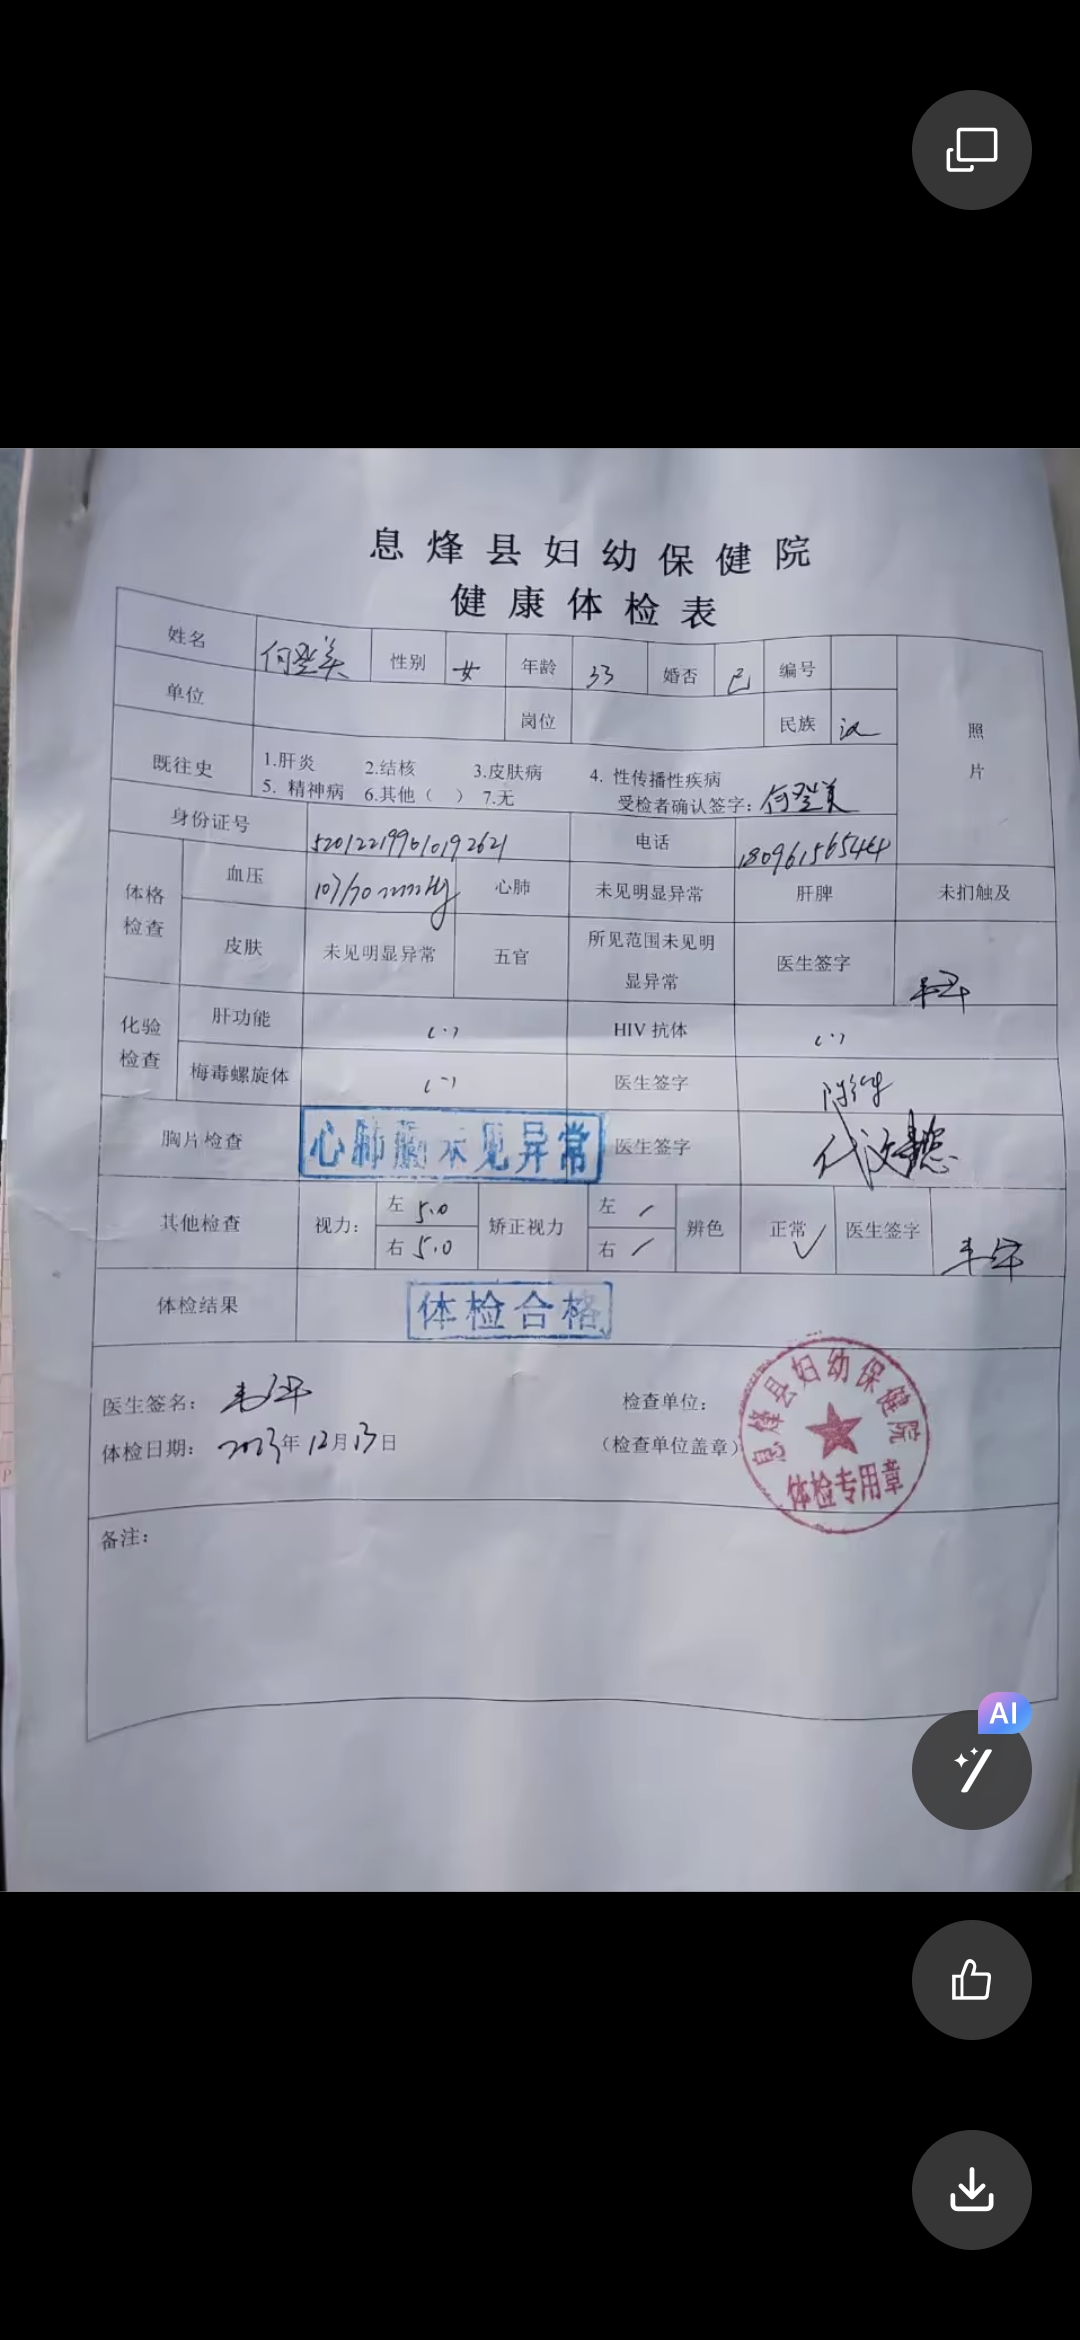 AI
息烽县妇幼保健院
健康体检表
姓名 何登美 性别 女 年龄 33 婚否 已 编号
单位 岗位 民族 汉
照
片
既往史 1.肝炎 2.结核 3.皮肤病 4. 性传播性疾病
5. 精神病 6.其他（ ） 7.无 受检者确认签字：何登美
身份证号 520122199010192621 电话 18096156544
体格
检查
血压 107/70mmHg 心肺 未见明显异常 肝脾 未扪触及
皮肤 未见明显异常 五官 所见范围未见明
显异常 医生签字
化验
检查
肝功能 (-) HIV 抗体 (-)
梅毒螺旋体 (-) 医生签字
胸片检查 心肺膈未见异常 医生签字
其他检查 视力： 左 5.0 矫正视力 左 / 辨色 正常 √ 医生签字
右 5.0 右 /
体检结果 体检合格
医生签名： 检查单位：
体检日期： 2023年12月13日 （检查单位盖章）
息烽县妇幼保健院
体检专用章
备注：